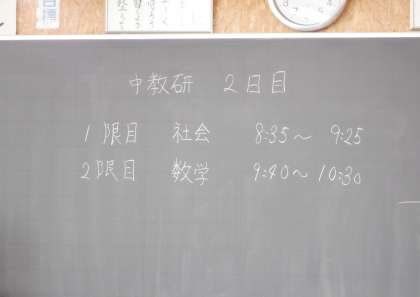 中教研 2日目
1限目 社会 8:35〜 9:25
2限目 数学 9:40〜 10:30